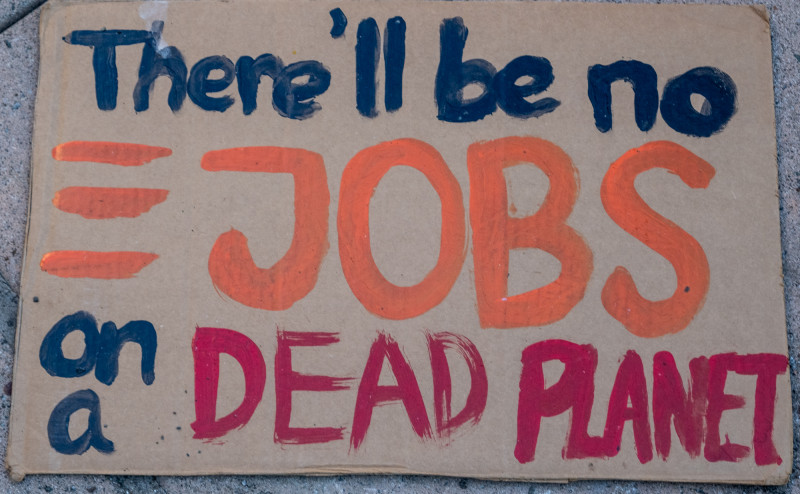 There'll be no
JOBS
on a DEAD PLANET